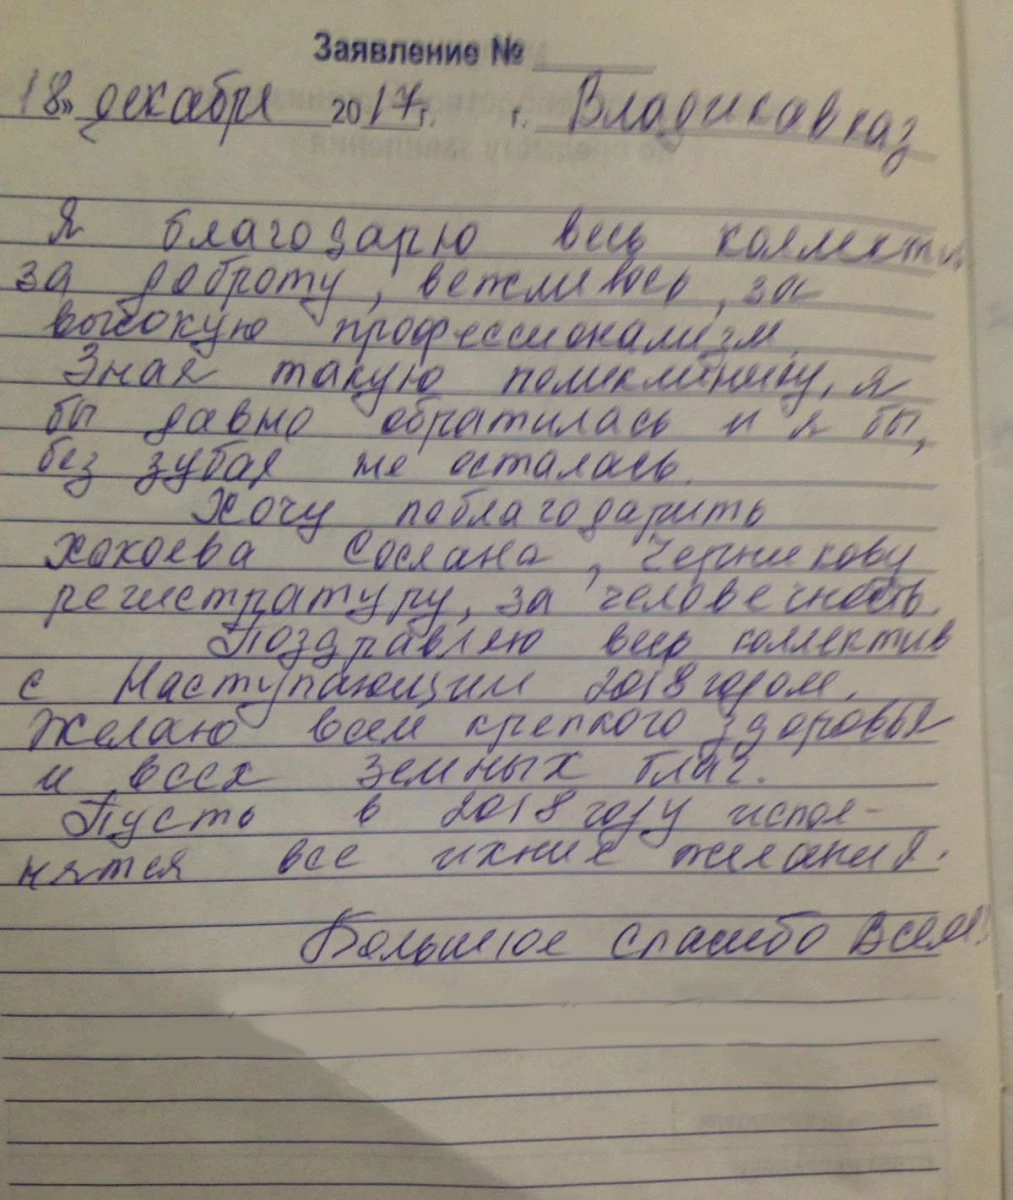 Заявление № ______
18» декабря 2017 г. г. Владикавказ
Я благодарю весь коллектив
за доброту, вежливось, за
высокую профессионализм.
Зная такую поликлинику, я
бы давно обратилась и я бы,
без зубая не осталась.
Хочу поблагодарить
Хокоева Сослана, Черникову
регистратуру, за человечность.
Поздравляю весь коллектив
с Наступающим 2018 годом.
Желаю всем крепкого здоровья
и всех земных благ.
Пусть в 2018 году испол-
нятся все ихние желания.
Большое спасибо Всем!